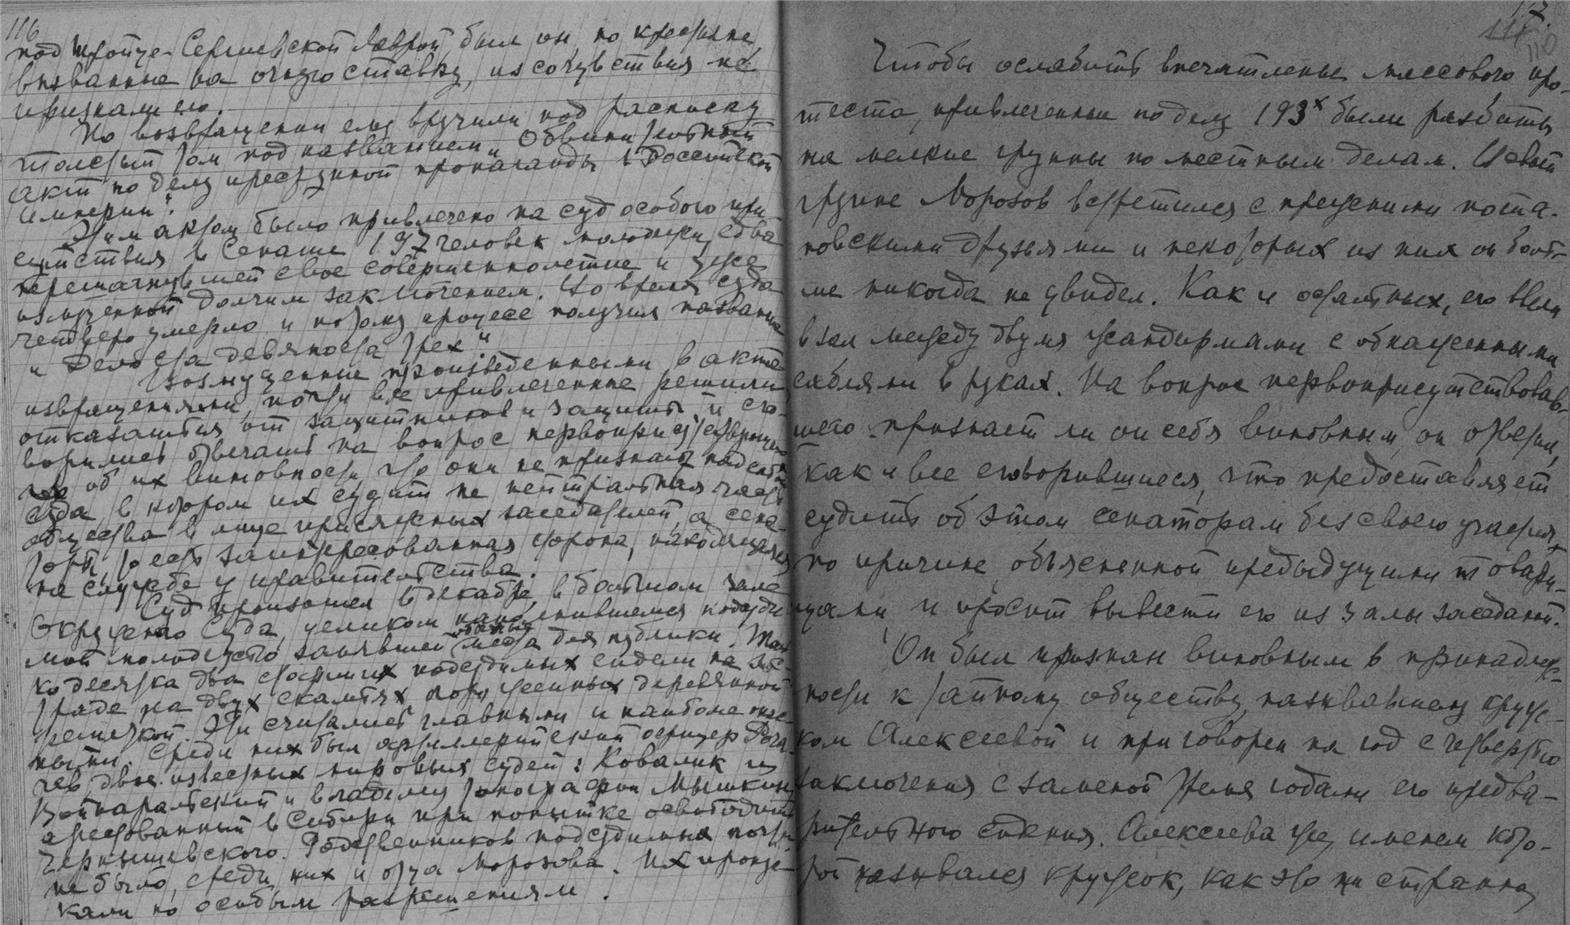 116
под Троице-Сергиевской Лаврой был он, но крестьяне
вызванные на очную ставку, из сочувствия не
признали его.
По возвращении ему вручили под расписку
толстый том под названием „Обвинительный
акт по делу преступной пропаганды в Российской
империи".
Этим актом было привлечено на суд особого при-
сутствия в Сенате 197 человек молодежи, едва
перешагнувшей свое совершеннолетие и уже
измученной долгим заключением. Во время суда
четверо умерло и потому процесс получил название
„Дело ста девяноста трех"
Возмущенные произведенными в акте
извращениями, почти все привлеченные решили
отказаться от защитников и защиты и сго-
ворились отвечать на вопрос
об их виновности что они не признают
суда, в котором их судит не нейтральная часть
общества в лице присяжных заседателей, а сена-
торы, то есть заинтересованная сторона, находящаяся
на службе у правительства.
Суд произошел в декабре в большом зале
Окружного Суда, целиком наполнившемся подсуди-
мой молодежью занявшей места для публики. Толь-
ко десятка два старших подсудимых сидели на эс-
траде на двух скамьях огороженных деревянной
решеткой. Эти считались главными и наиболее опас-
ными. Среди них был артиллерийский офицер Рога-
чев, двое известных мировых судей: Ковалик и
Войнаральский и владелец типографии Мышкин
арестованный в Сибири при попытке освободить
Чернышевского. Родственников подсудимых почти
не было, среди них и отца Морозова. Их пропус-
кали по особым разрешениям.
117.
110
Чтобы ослабить впечатленье массового про-
теста, привлеченные по делу 193х были разбиты
на мелкие группы по местным делам. В своей
группе Морозов встретился с прежними
друзьями и некоторых из них он боль-
ше никогда не увидел. Как и остальных, его ввели
в зал между двумя жандармами с обнаженными
саблями в руках. На вопрос первоприсутствовав-
шего признает ли он себя виновным, он ответил,
как и все сговорившиеся, что предоставляет
судить об этом сенаторам без своего участия,
по причине, объясненной предыдущими товари-
щами и просит вывести его из залы заседаний.
Он был признан виновным в принадлеж-
ности к тайному обществу, называемому круж-
ком Алексеевой и приговорен на год с четвертью
заключения с заменой тремя годами его предва-
рительного сидения. Алексеева же, именем кото-
рой назывался кружок, как это ни странно,